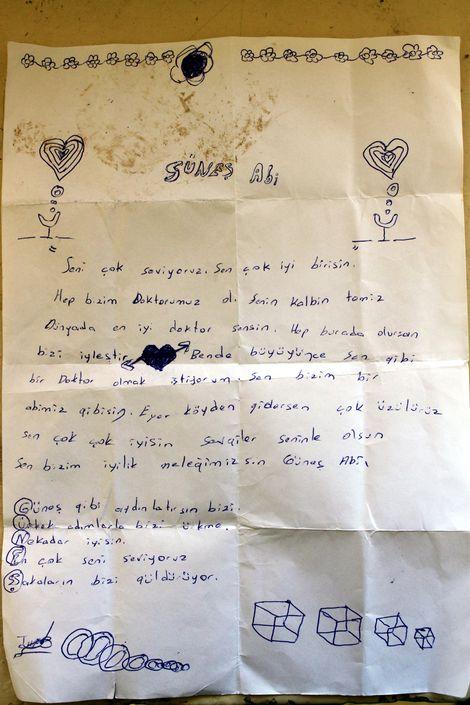 GÜNEŞ Abi
Seni çok seviyoruz. Sen çok iyi birisin.
Hep bizim Doktorumuz ol. Senin Kalbin temiz
Dünyada en iyi doktor sensin. Hep burada olursan
bizi iyleştir Bende büyüyünce sen gibi
bir Doktor olmak istiyorum. Sen bizim bir
abimiz gibisin. Eyer köyden gidersen çok üzülürüz
sen çok çok iyisin sevgiler seninle olsun
Sen bizim iyilik meleğimizsin Güneş Abi.
Güneş gibi aydınlatırsın bizi.
Ürkek adımlarla bizi ürkme.
Nekadar iyisin.
En çok seni seviyoruz
Şakaların bizi güldürüyor.